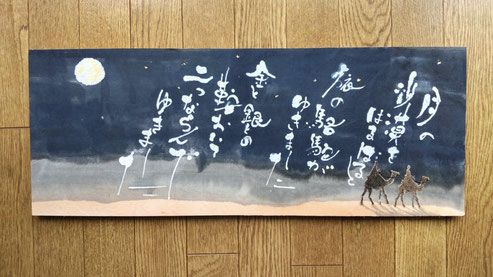 月の
沙漠を
はるばると
旅の駱駝が
ゆきました
金と銀との
鞍おいて
二つならんで
ゆきました